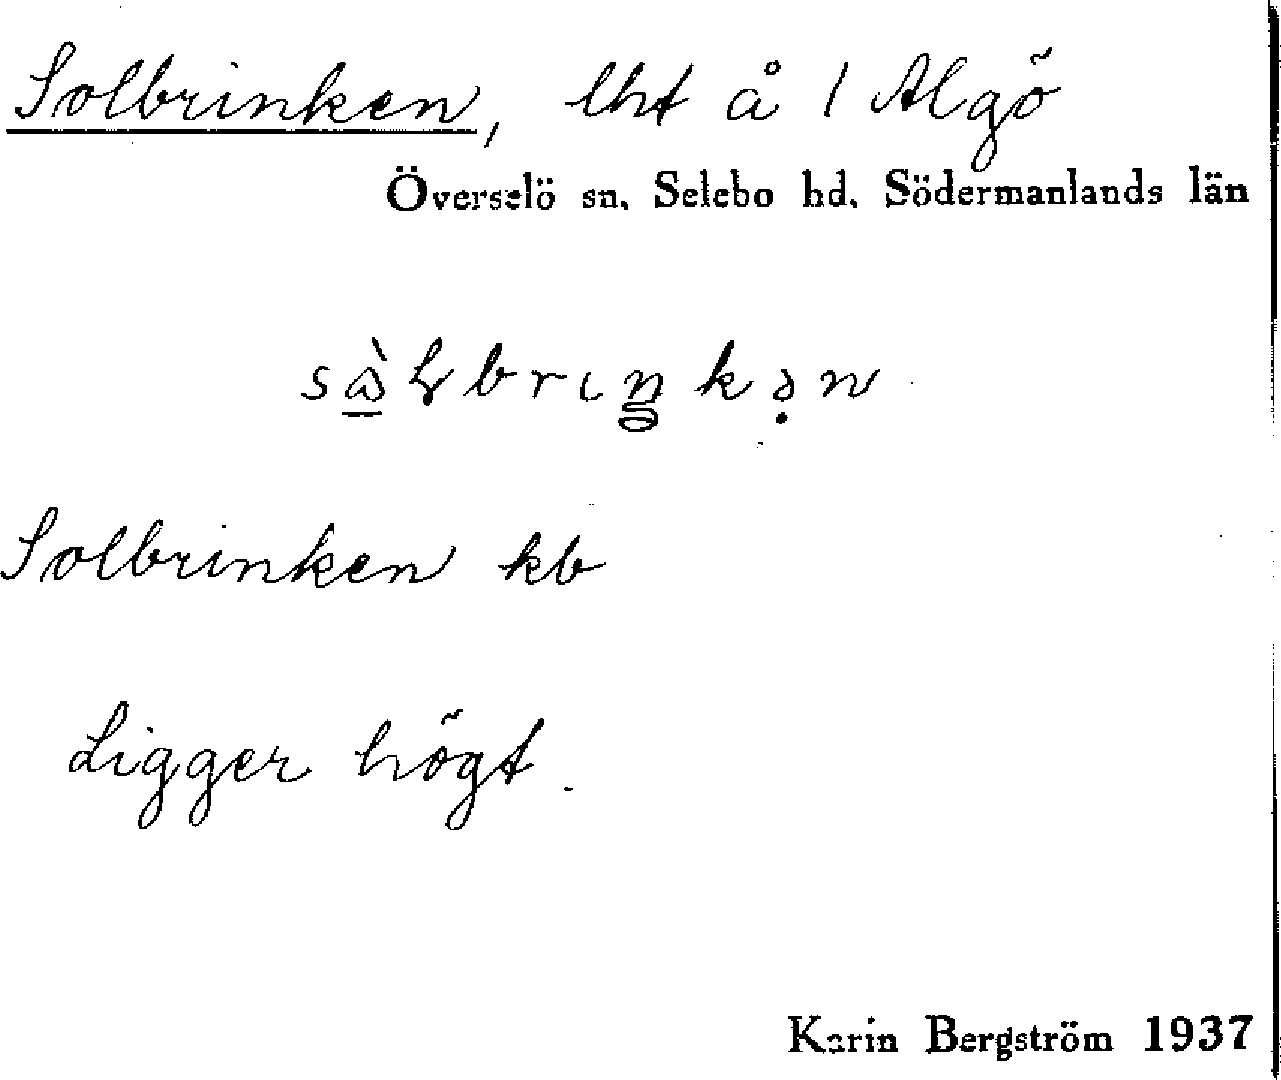 Solbrinken, lht å 1 Algö
Överselö sn. Selebo hd. Södermanlands län
Solbrinken kb
Ligger högt.
Karin Bergström 1937